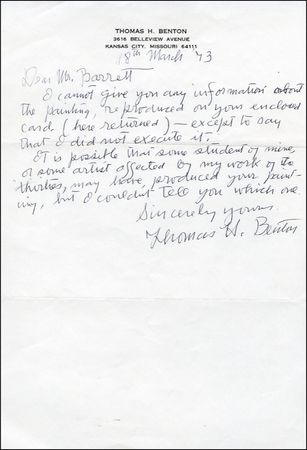 THOMAS H. BENTON
3616 BELLEVIEW AVENUE
KANSAS CITY, MISSOURI 64111
18th March 73
Dear Mr. Barrett
I cannot give you any information about
the painting, reproduced on your enclosed
card (here returned) – except to say
that I did not execute it.
It is possible that some student of mine,
or some artist affected by my work of the
thirties, may have produced your paint-
ing, but I couldn't tell you which one.
Sincerely yours.
Thomas H. Benton